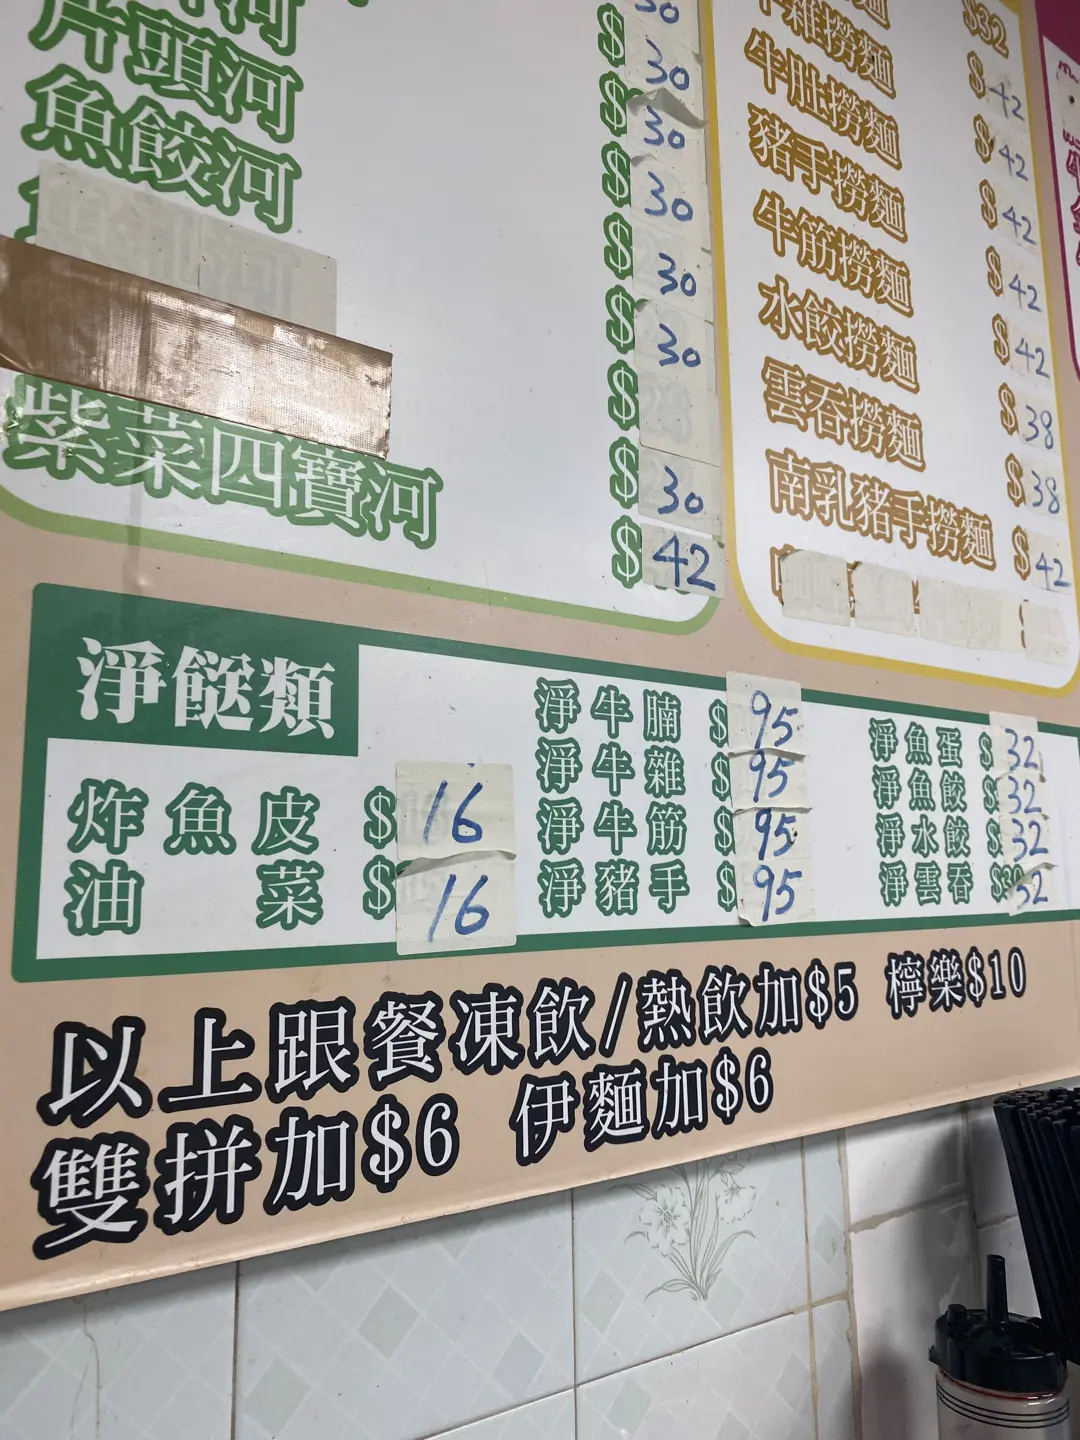 片頭河
魚餃河
紫菜四寶河
$30
$30
$30
$30
$30
$30
$
$30
$42
$32
牛雜撈麵 $42
牛肚撈麵 $42
豬手撈麵 $42
牛筋撈麵 $42
水餃撈麵 $42
雲吞撈麵 $38
南乳豬手撈麵 $38
$42
淨餸類
炸魚皮 $16
油菜 $16
淨牛腩 $95
淨牛雜 $95
淨牛筋 $95
淨豬手 $95
淨魚蛋 $32
淨魚餃 $32
淨水餃 $32
淨雲吞 $32
以上跟餐凍飲/熱飲加$5 檸樂$10
雙拼加$6 伊麵加$6